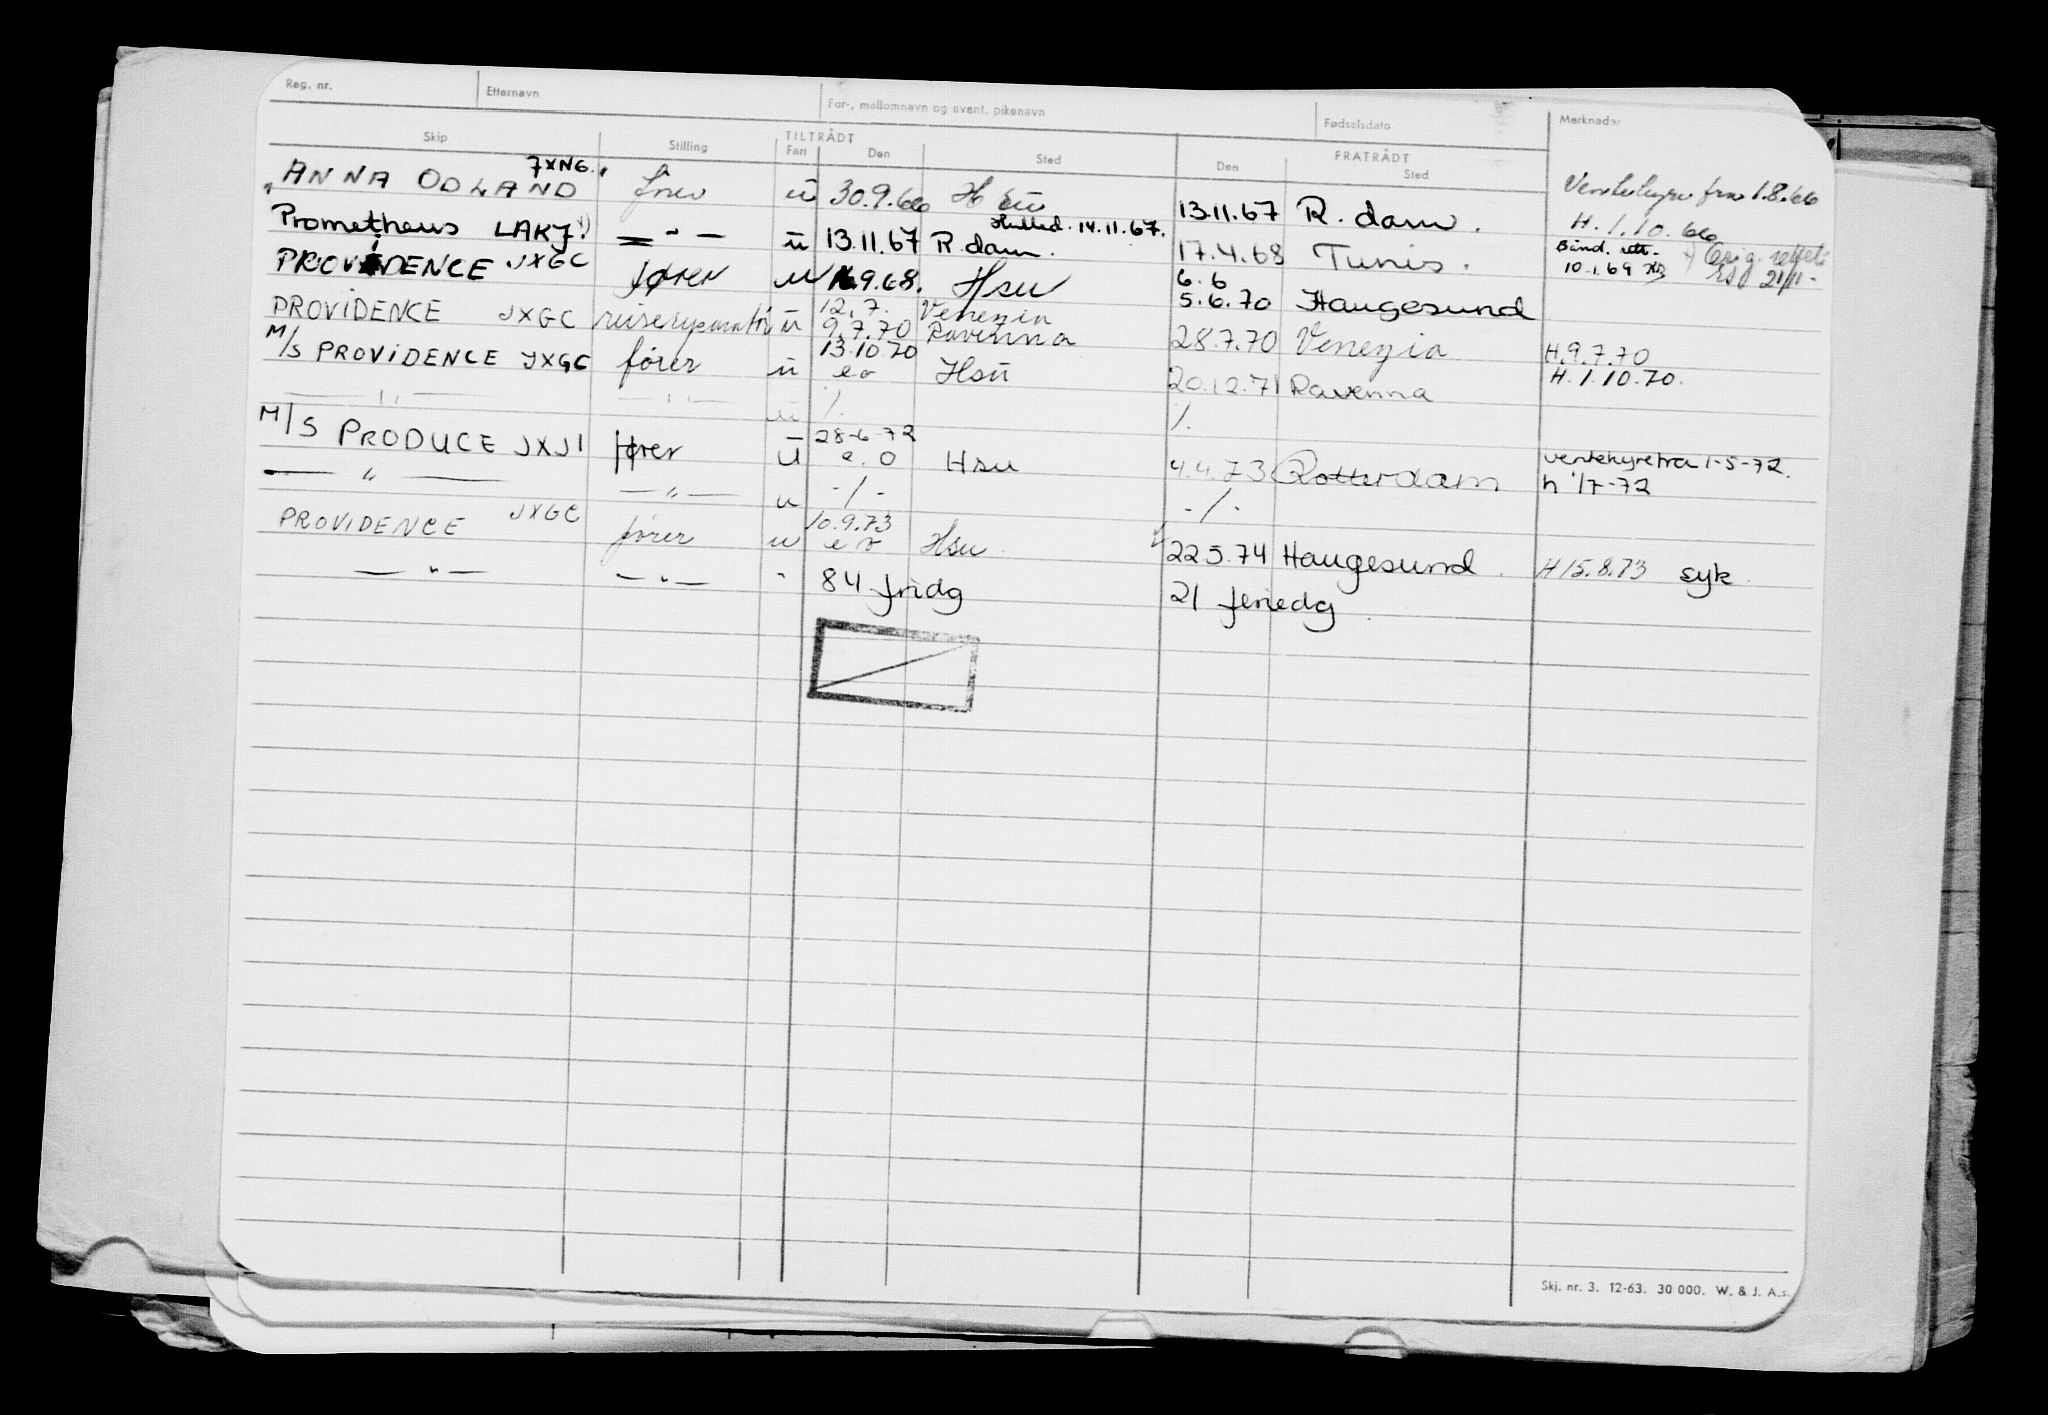 Reg. nr. Etternavn For-, mellomnavn og event. pikenavn Fødselsdato Merknader
TILTRÅDT FRATRÅDT
Skip Stilling Fart Den Sted Den Sted
ANNA ODLAND JXNG. fører u 30.9.66 Hsu 13.11.67 R. dam. Ventehyre fra 1.8.66
H. 1.10.66
Prometheus LAKJ. — " — u 13.11.67 R. dam. 14.11.67. 17.4.68 Tunis. 10.1.69
PROVIDENCE JXGC fører u 9.68. Hsu 6.6
5.6.70 Haugesund
PROVIDENCE JXGC u 12.7. Venezia
9.7.70 Ravenna 28.7.70 Venezia H.9.7.70
M/S PROVIDENCE JXGC fører u 13.10.70
eo Hsu 20.12.71 Ravenna H.1.10.70.
— " — — " — u /. /.
M/S PRODUCE JXJI fører u 28-6-72
e.o Hsu 4.4.73 Rotterdam ventehyre fra 1-5-72.
h 1/7-72
— " — — " — u -/- -/-
PROVIDENCE JXGC fører u 10.9.73
eo Hsu 22.5.74 Haugesund. H 15.8.73 syk.
— " — — " — " 84 fridg 21 feriedg.
Skj. nr. 3. 12-63. 30 000. W. & J. A.s.